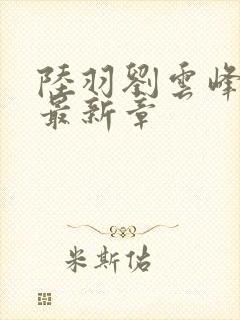 陸羽劉雲峰
最新章
米斯佑